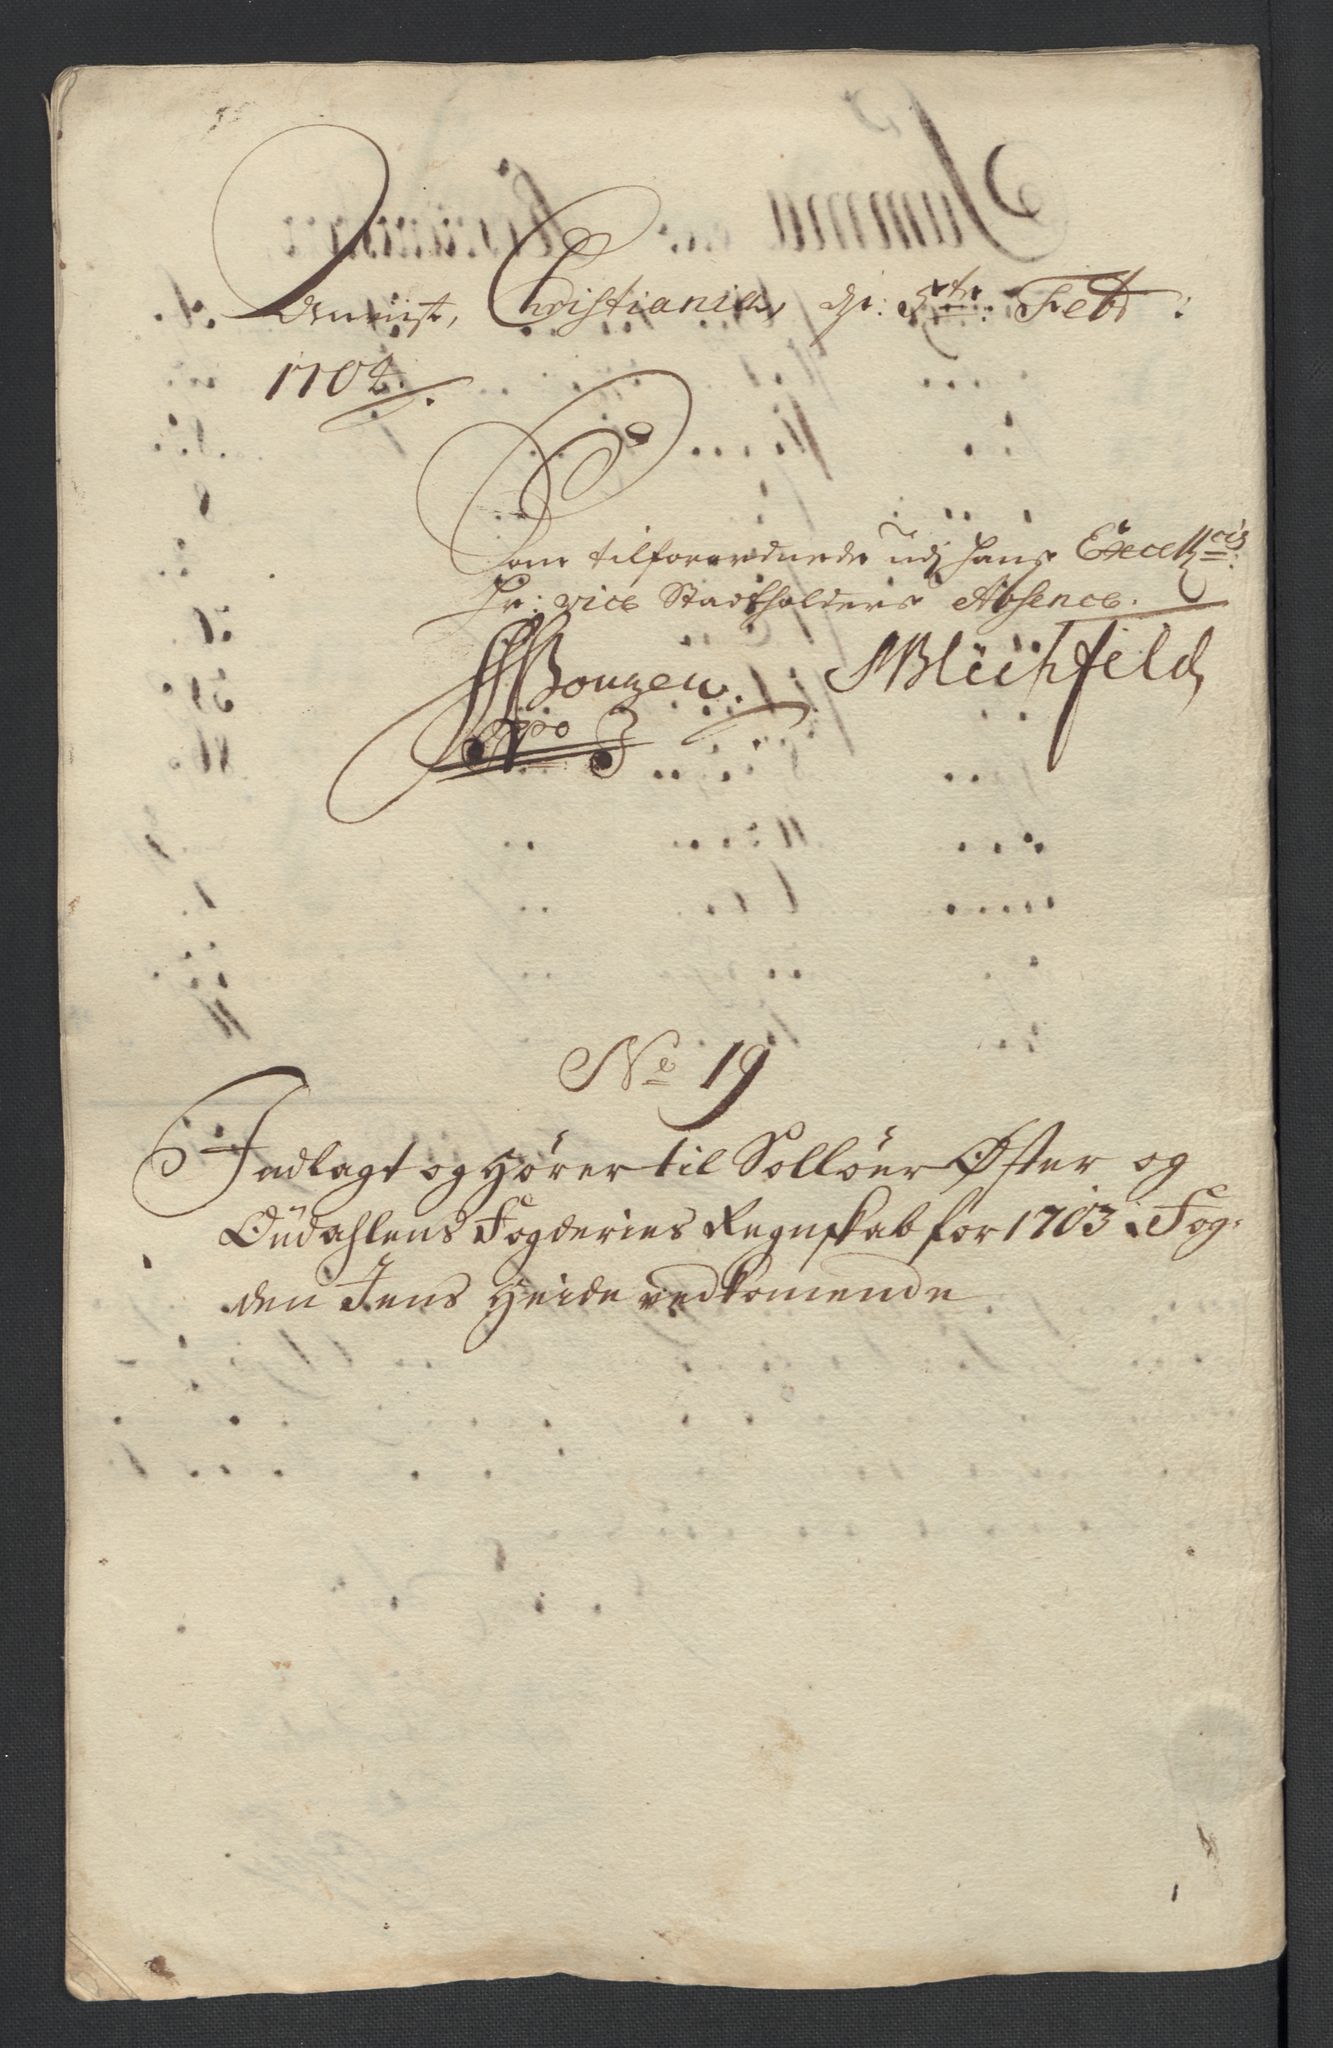 Anvist, Christiania, d: 5te: Feb:
1704.
Som tilforordnede udj hans Excell:cis
Hr: vice Stadtholders Absence.
Bonzen. MBlichfeld
No 19
Indlagt og Hører til Sollöer Øster og
Oüdahlens Fogderies Regnskab for 1703. Fog-
den Jens Heide vedkomende